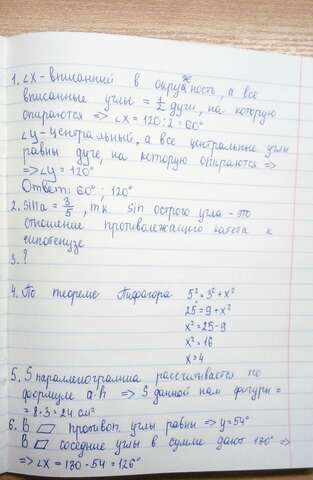 1. ∠X - вписанный в окружность, а все
вписанные углы = 1/2 дуги, на которую
опираются => ∠X = 120:2 = 60°
∠y - центральный, а все центральные углы
равны дуге, на которую опираются =>
=> ∠y = 120°
Ответ: 60°; 120°
2. sin a = 3/5, т.к. sin острого угла - это
отношение противолежащего катета к
гипотенузе
3. ?
4. По теореме Пифагора 5² = 3² + x²
25 = 9 + x²
x² = 25 - 9
x² = 16
x = 4
5. S параллелограмма рассчитывается по
формуле a·h => S данной нам фигуры =
= 8·3 = 24 см²
6. В ▱ противоп. углы равны => y = 54°
В ▱ соседние углы в сумме дают 180° =>
=> ∠X = 180 - 54 = 126°